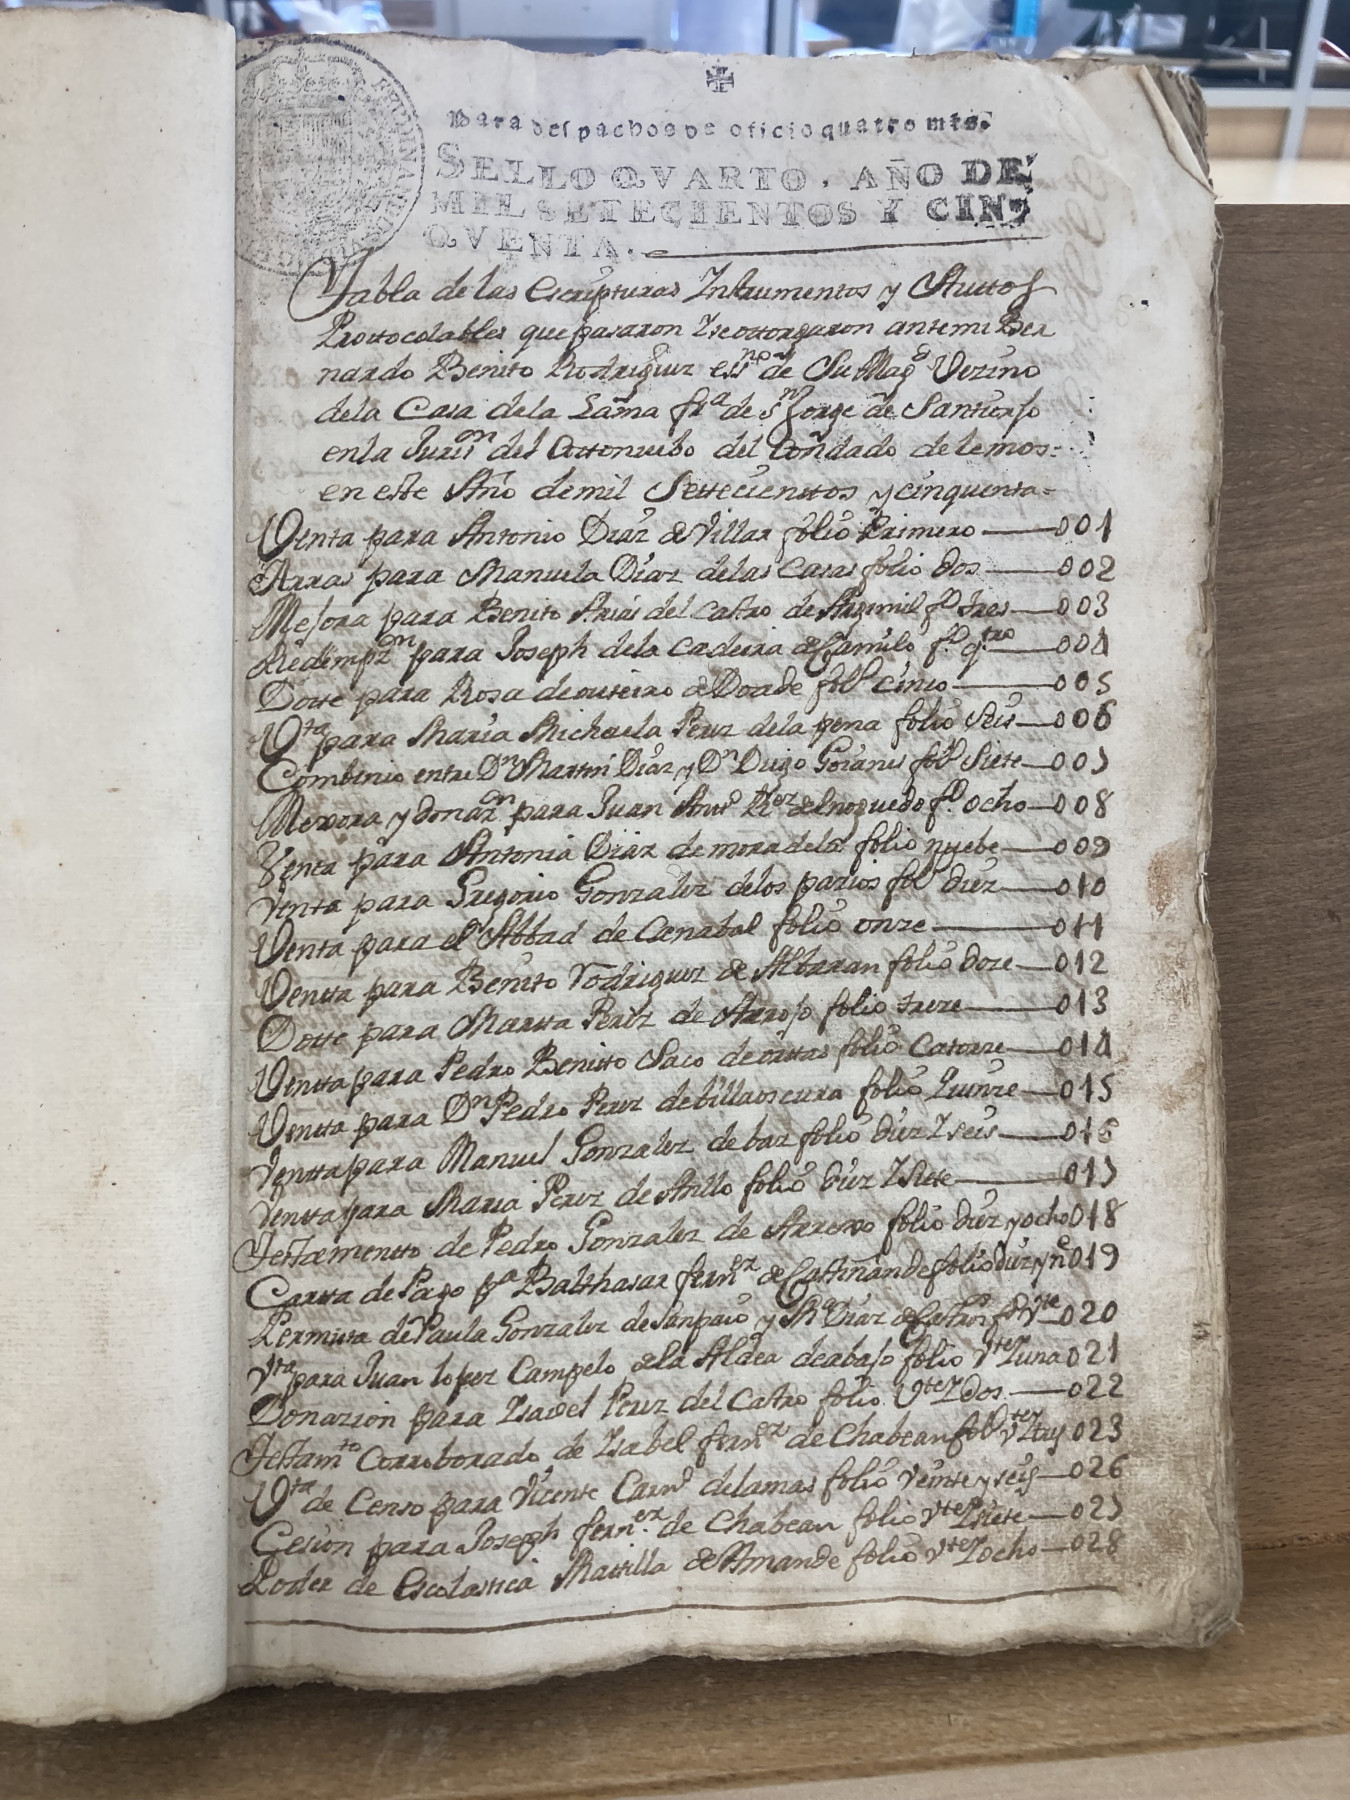 Para despachos de oficio quatro mrs.
SELLO QVARTO, AÑO DE
MIL SETECIENTOS Y CIN-
QVENTA.
Tabla de las Escripturas Instrumentos y Auttos
Prottocolables que pasaron Yseottorgaron antemi Ber
nardo Benito Rodriguez essno de Su Magd Vezino
dela Casa dela Lama fra de Sn Jorge de Santiorjo
enla Jurison del Cottonuebo del Condado de Lemos:
en este Año demil Settecienttos y cinquenta=
Venta para Antonio Diaz de Villar folio Primero 001
Arras para Manuela Diaz delas Casas folio dos 002
Mejora para Benito Arias del Castro de Argimil fo tres 003
Redempzon para Joseph dela Cadeira de Camilo fo qtro 004
Dotte para Rosa de outeiro de Doade folo cinco 005
Vta para Maria Michaela Perez dela pena folio Seis 006
Combenio entre Dn Martin Diaz y Dn Diego Goianes folo Siete 007
Mexora y donazon para Juan Anto Rez del noguedo fo ocho 008
Venta para Antonia Diaz de moradela folio nuebe 009
Venta para Gregorio Gonzalez delos parios folo diez 010
Venta para el Abbad de Canabal folio onze 011
Ventta para Benito Rodriguez de Albaran folio doze 012
Dotte para Martta Perez de Arrojo folio treze 013
Ventta para Pedro Benitto Saco de orttas folio Catorze 014
Ventta para Dn Pedro Perez debillaoscura folio Quinze 015
Ventta para Manuel Gonzalez de bar folio diez Yseis 016
Ventta para Maria Perez de Atillo folio diez Ysiete 017
Testamentto de Pedro Gonzalez de Arroxo folio diez y ocho 018
Cartta de Pago pa Balthasar fernez de Castinande folio diez y ne 019
Permuta de Paula Gonzalez de Sanpaio y Ma Diaz de Castros fo Vte 020
Vta para Juan lopez Campelo dela Aldea deabajo folio Vte Yuna 021
Donazion para Ysavel Perez del Castro folio Vte Ydos 022
Testamto Corroborado de Ysabel fernez de Chabean folo Vte Ytres 023
Vta de Censo para Vicente Carno delamas folio Veinte y seis 026
Cesion para Joseph fernez de Chabean folio Vte Ysiete 027
Poder de Escolastica Mattilla de Amande folio Vte Yocho 028